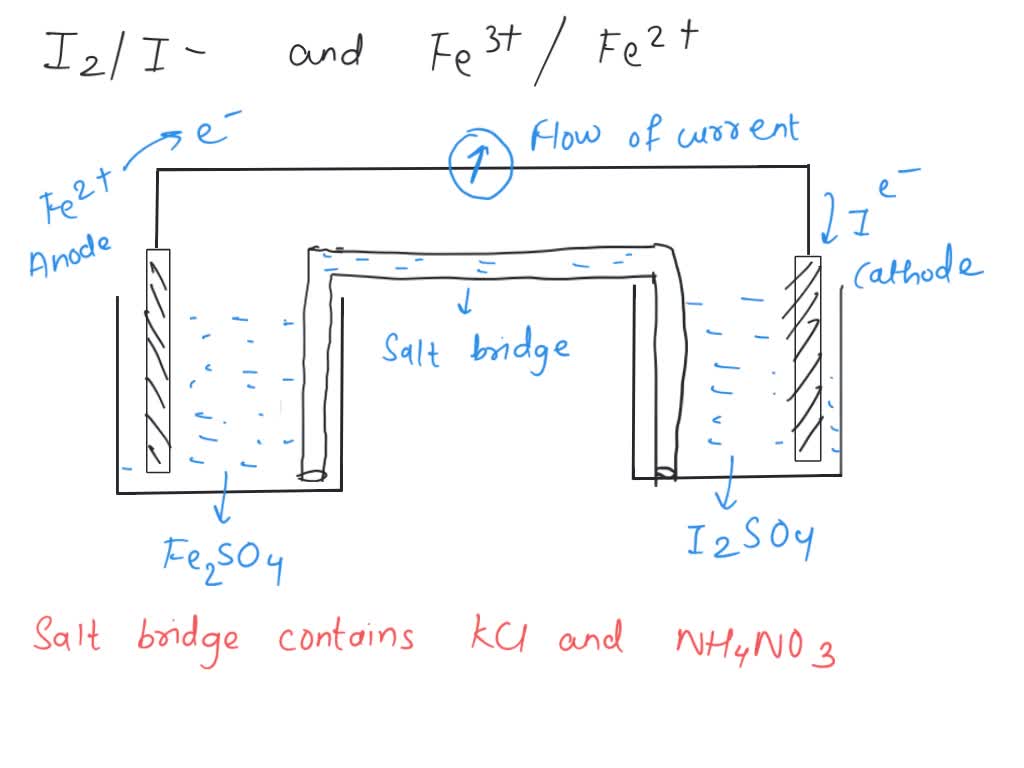 I2/I- and Fe3+/Fe2+
e-
Flow of current
Fe2+
e-
I
Anode
Cathode
Salt bridge
Fe2SO4
I2SO4
Salt bridge contains KCl and NH4NO3